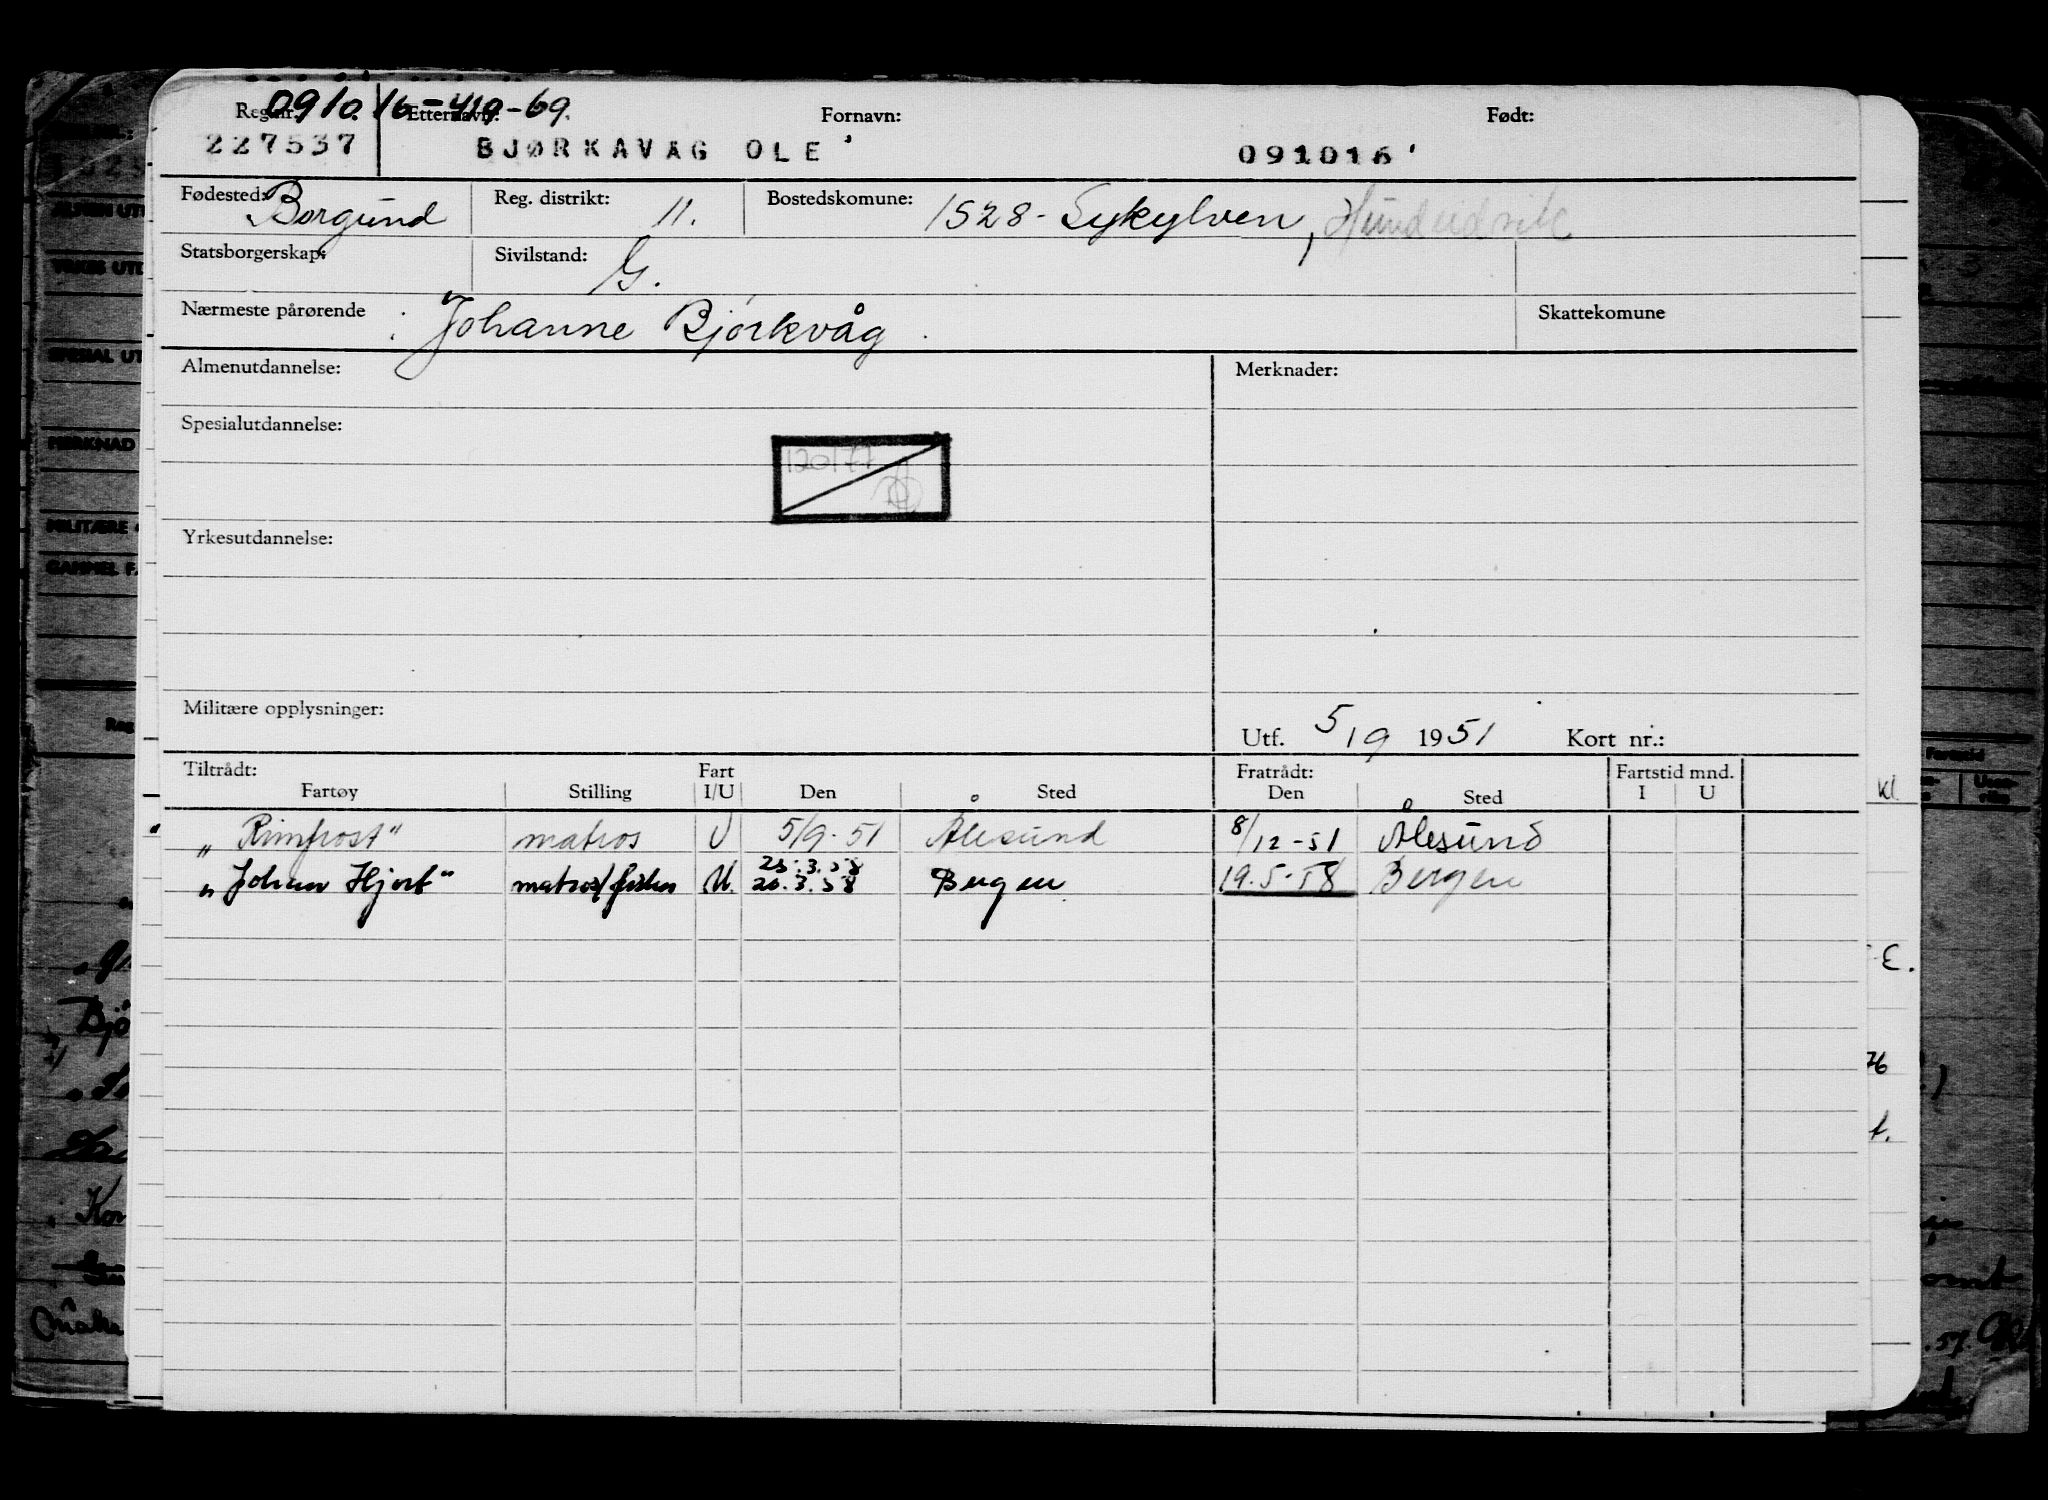 091016-419-69.
Reg.nr. Etternavn: Fornavn: Født:
227537 BJØRKAVAG OLE 091016
Fødested: Borgund Reg. distrikt: 11. Bostedskomune: 1528 - Sykylven, Hundeidvik
Statsborgerskap: Sivilstand: G.
Nærmeste pårørende Johanne Bjørkvåg Skattekomune
Almenutdannelse: Merknader:
Spesialutdannelse:
120177
Yrkesutdannelse:
Militære opplysninger:
Utf. 5/9 1951 Kort nr.:
Tiltrådt: Fart Fratrådt: Fartstid mnd.
Fartøy Stilling I/U Den Sted Den Sted I U
„Rimfrost“ matros U 5/9-51 Ålesund 8/12-51 Ålesund
23.3.58
„Johan Hjort“ matros/fisker U. 20.3.58 Bergen 19.5-58 Bergen